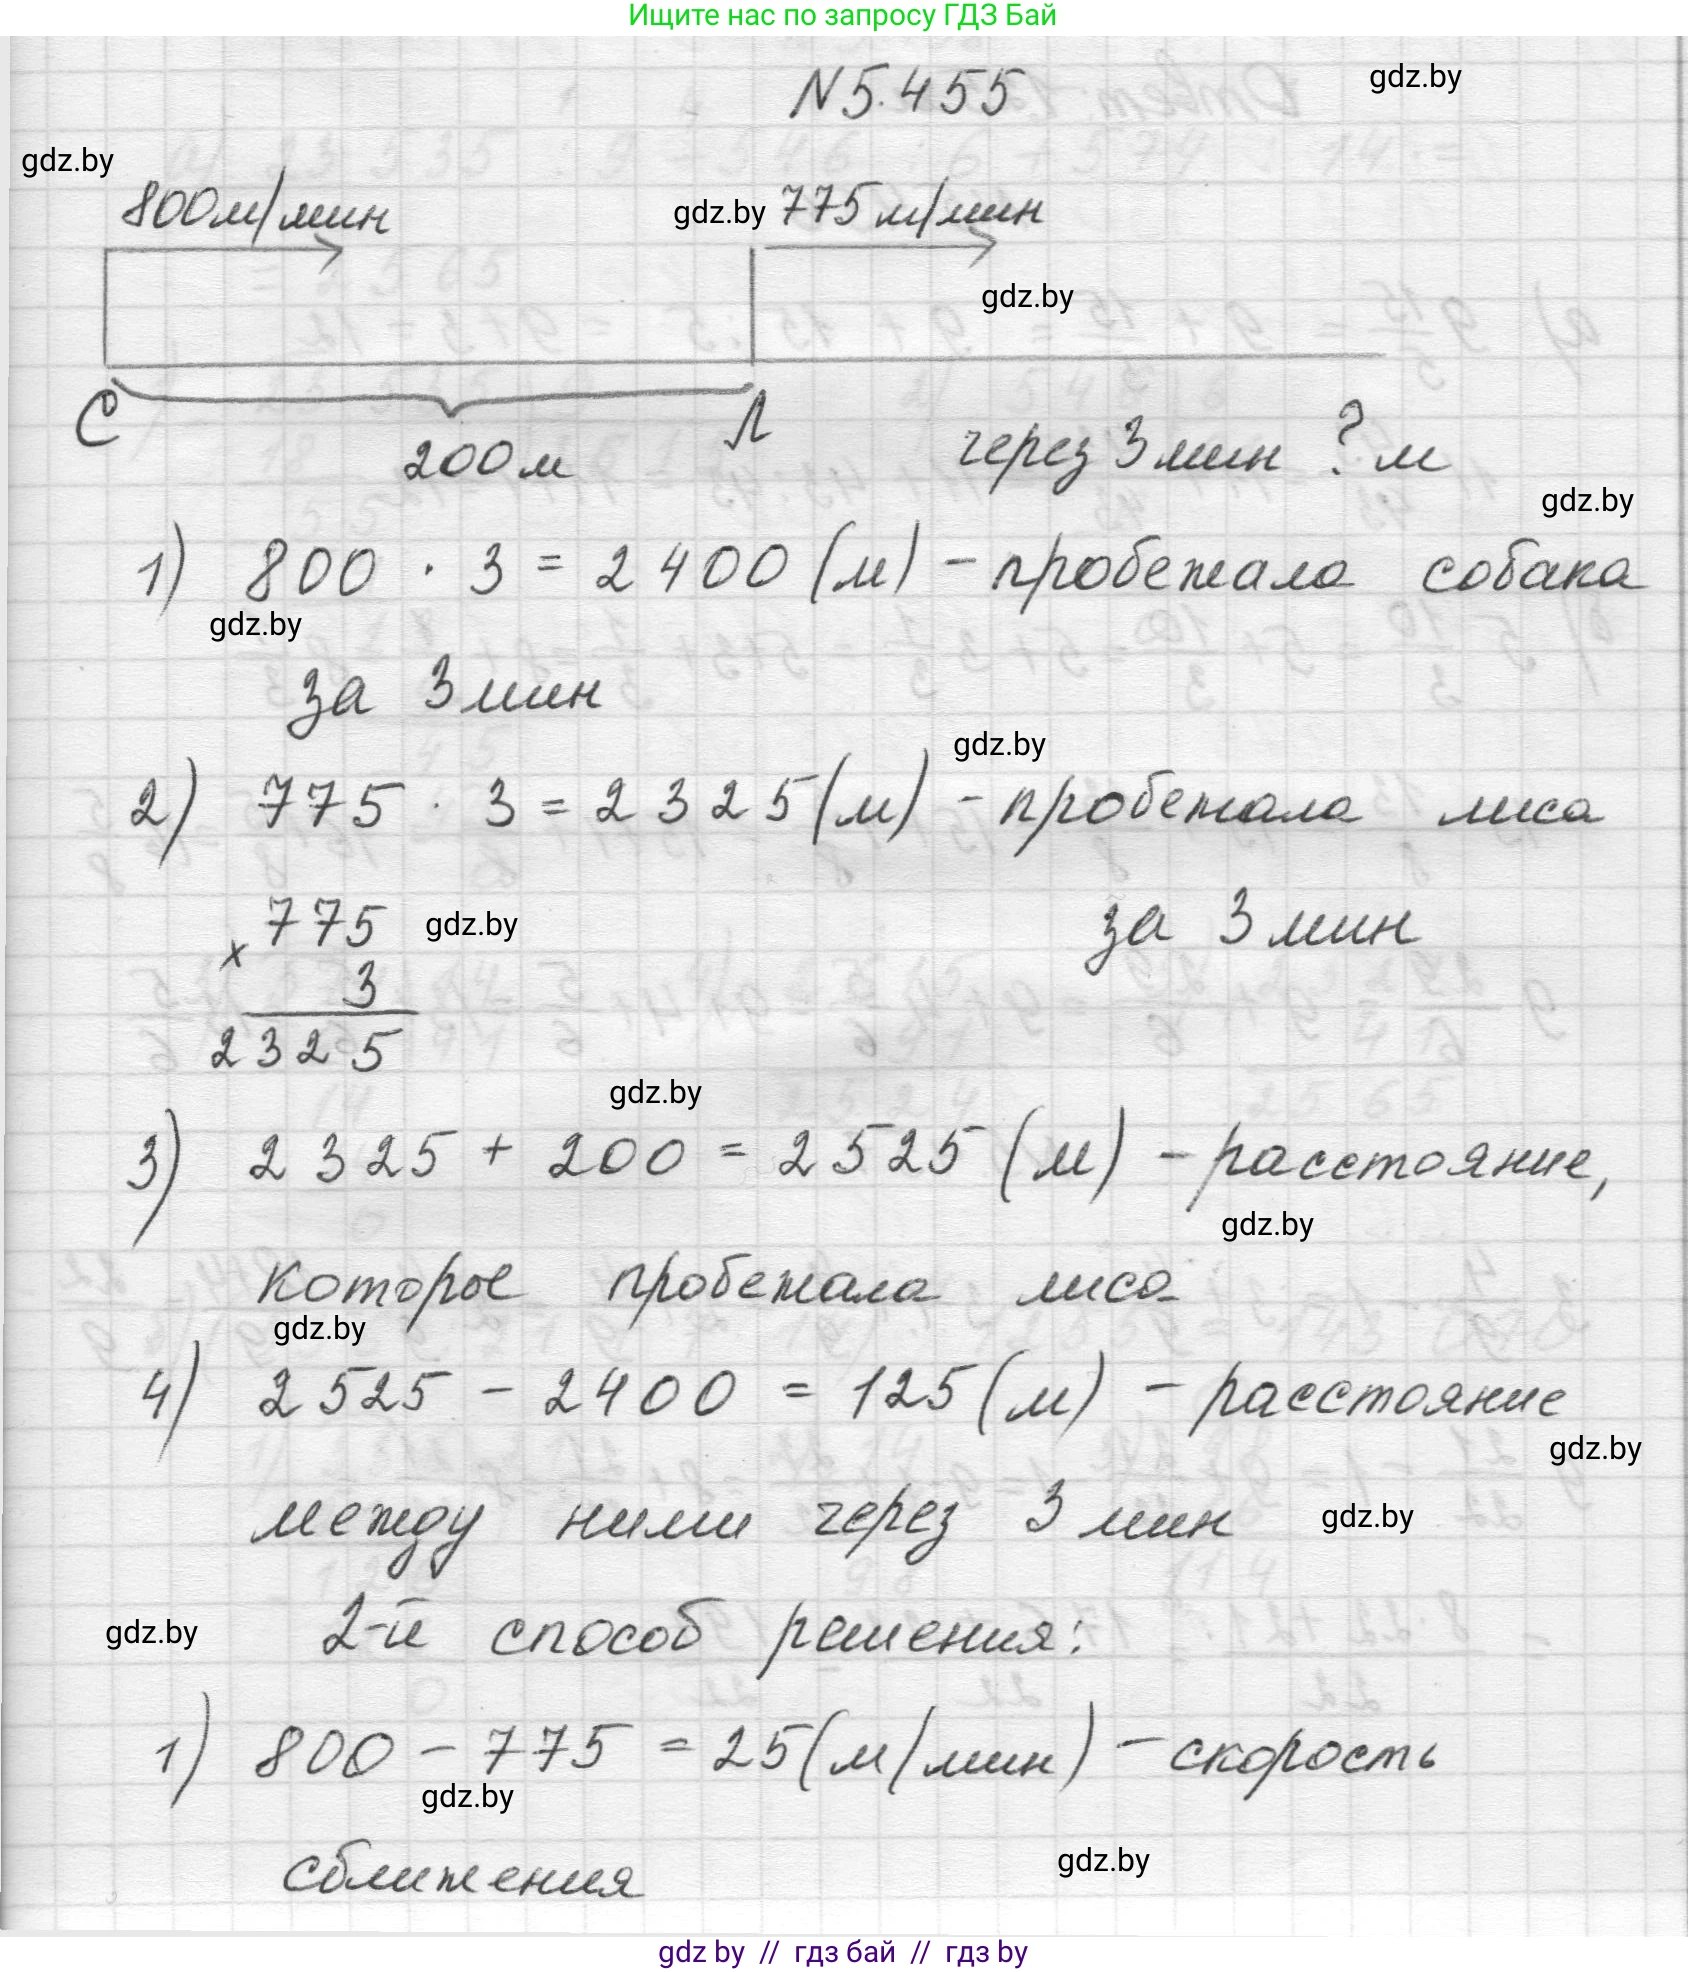 Ищите нас по запросу ГДЗ Бай
N5.455
gdz.by
gdz.by
800м/мин
gdz.by
775м/мин
gdz.by
С
200м
Л
через 3 мин ? м
gdz.by
1) 800 · 3 = 2400 (м) - пробежала собака
gdz.by
за 3 мин
gdz.by
2) 775 · 3 = 2325 (м) - пробежала лиса
за 3 мин
775
gdz.by
х
3
2325
gdz.by
3) 2325 + 200 = 2525 (м) - расстояние,
gdz.by
которое пробежала лиса
gdz.by
4) 2525 - 2400 = 125 (м) - расстояние
gdz.by
между ними через 3 мин
gdz.by
gdz.by
2-й способ решения:
1) 800 - 775 = 25 (м/мин) - скорость
gdz.by
сближения
gdz.by
gdz by // гдз бай // гдз by